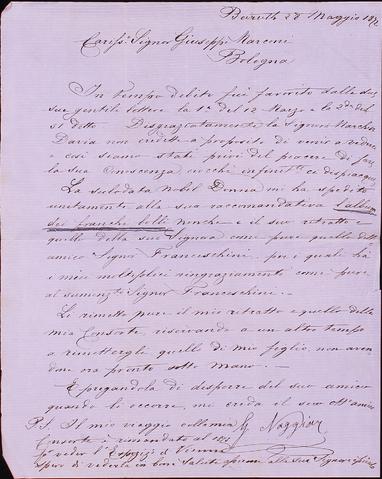 Beiruth 28 Maggio 187
Cariss. Signor Giuseppe Marconi
Bologna
In tempo debito fui favorito dalle di
sue gentili lettere la 1ª del 12 Marzo e la 2ª del
31 detto. Disgraziatamente la Signora March
Daria non credette a proposito di venir a
e così siamo stati privi del piacere di far
la sua conoscenza
La sulodata Nobil Donna mi ha spedito
unitamente alla sua raccomandativa l'album
dei franchi bolli nonche e il suo ritratto e
quello della sua Signora come pure quello dell'
amico Signor Franceschini, per i quali ha
i miei molteplici ringraziamenti come pure
al sunnomto Signor Franceschini.
Le rimetto pure il mio ritratto e quello della
mia Consorte, riserbando a un altro tempo
a rimettergli quello di mio figlio, non aven
done ora pronto sotto mano.
E pregandola di disporre del suo amico
quando li occorre, mi creda il suo Aff amico
P.S. Il mio viaggio colla mia G Naggiar
Consorte è rimandato al 187
per veder l'Espoziz di Vienna
spero di vederla in buona salute